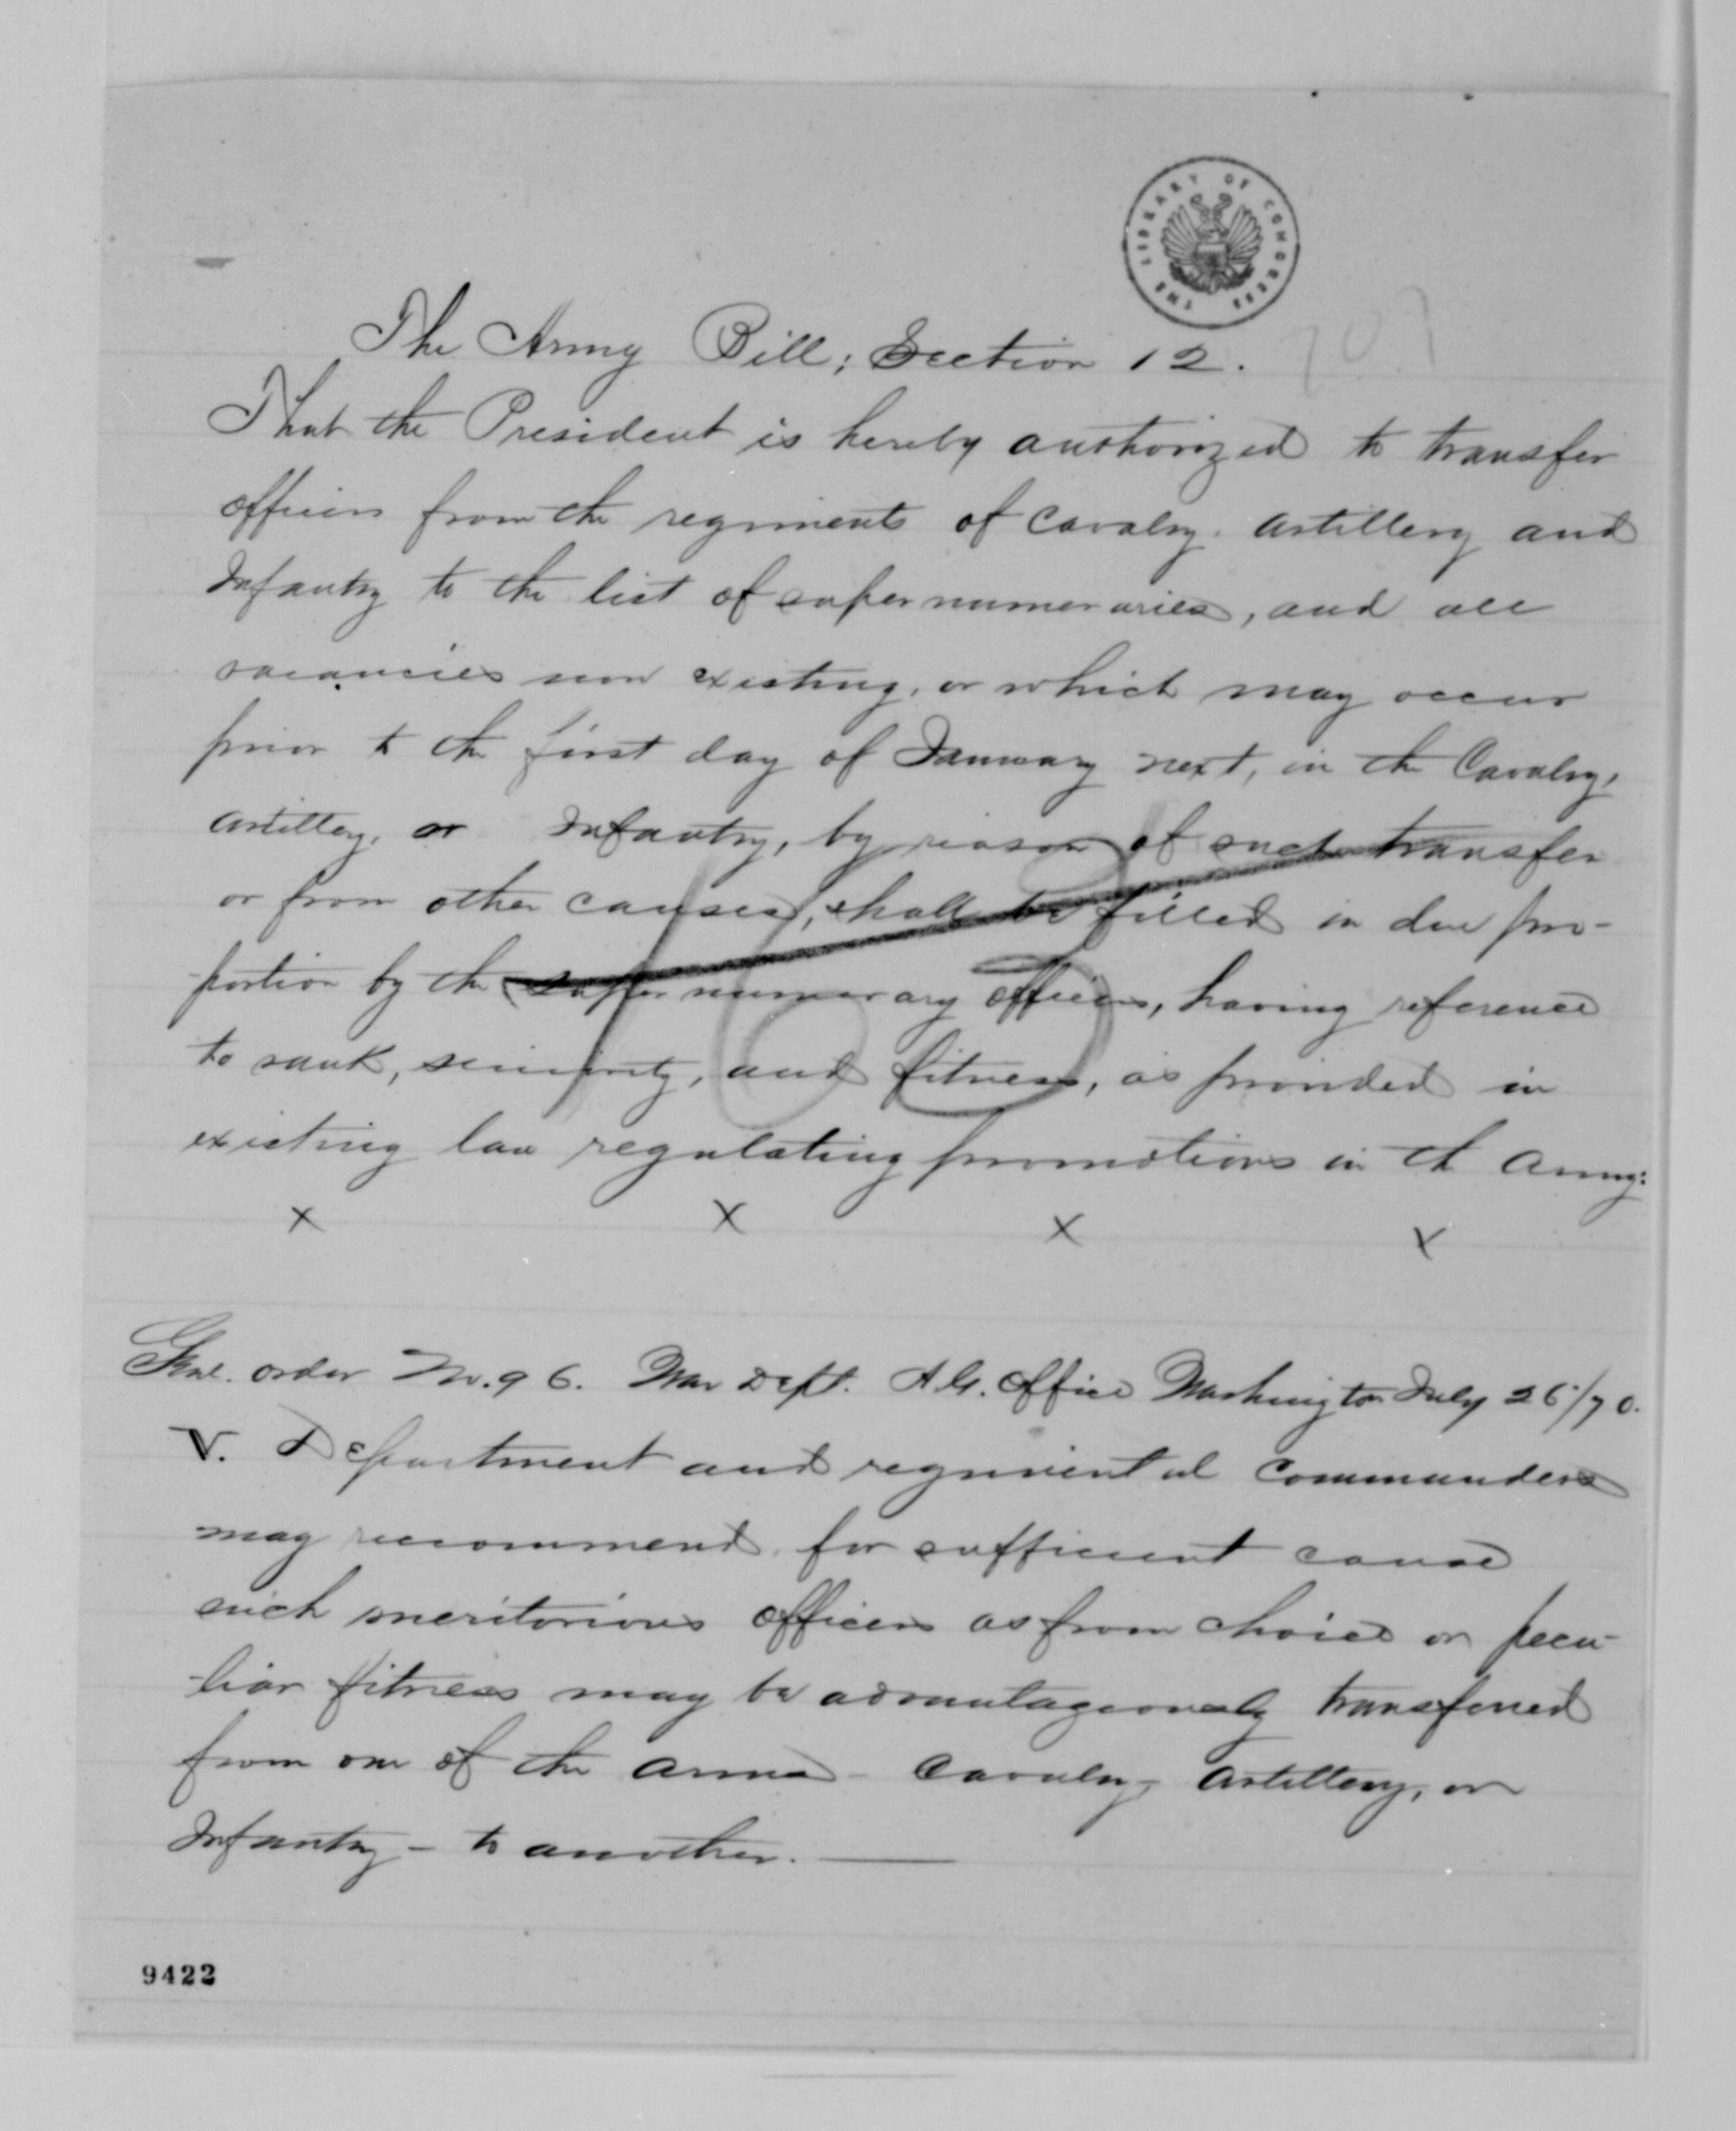 THE LIBRARY OF CONGRESS
707
The Army Bill; Section 12.
That the President is hereby authorized to transfer
officers from the regiments of Cavalry. Artillery and
Infantry to the list of supernumeraries, and all
vacancies now existing, or which may occur
prior to the first day of January next, in the Cavalry,
Artillery, or Infantry, by reason of such transfer
or from other causes, shall be filled in due pro-
portion by the supernumerary officers, having reference
to rank, seniority, and fitness, as provided in
existing law regulating promotions in the Army:
x x x x
Genl. order No. 96. War Dept. A.G. Office Washington July 26/70.
V. Department and regimental Commanders
may recommend, for sufficient cause
such meritorious officers as from choice or pecu-
-liar fitness may be advantageously transferred
from one of the arms - Cavalry, Artillery, or
Infantry - to another.
9422